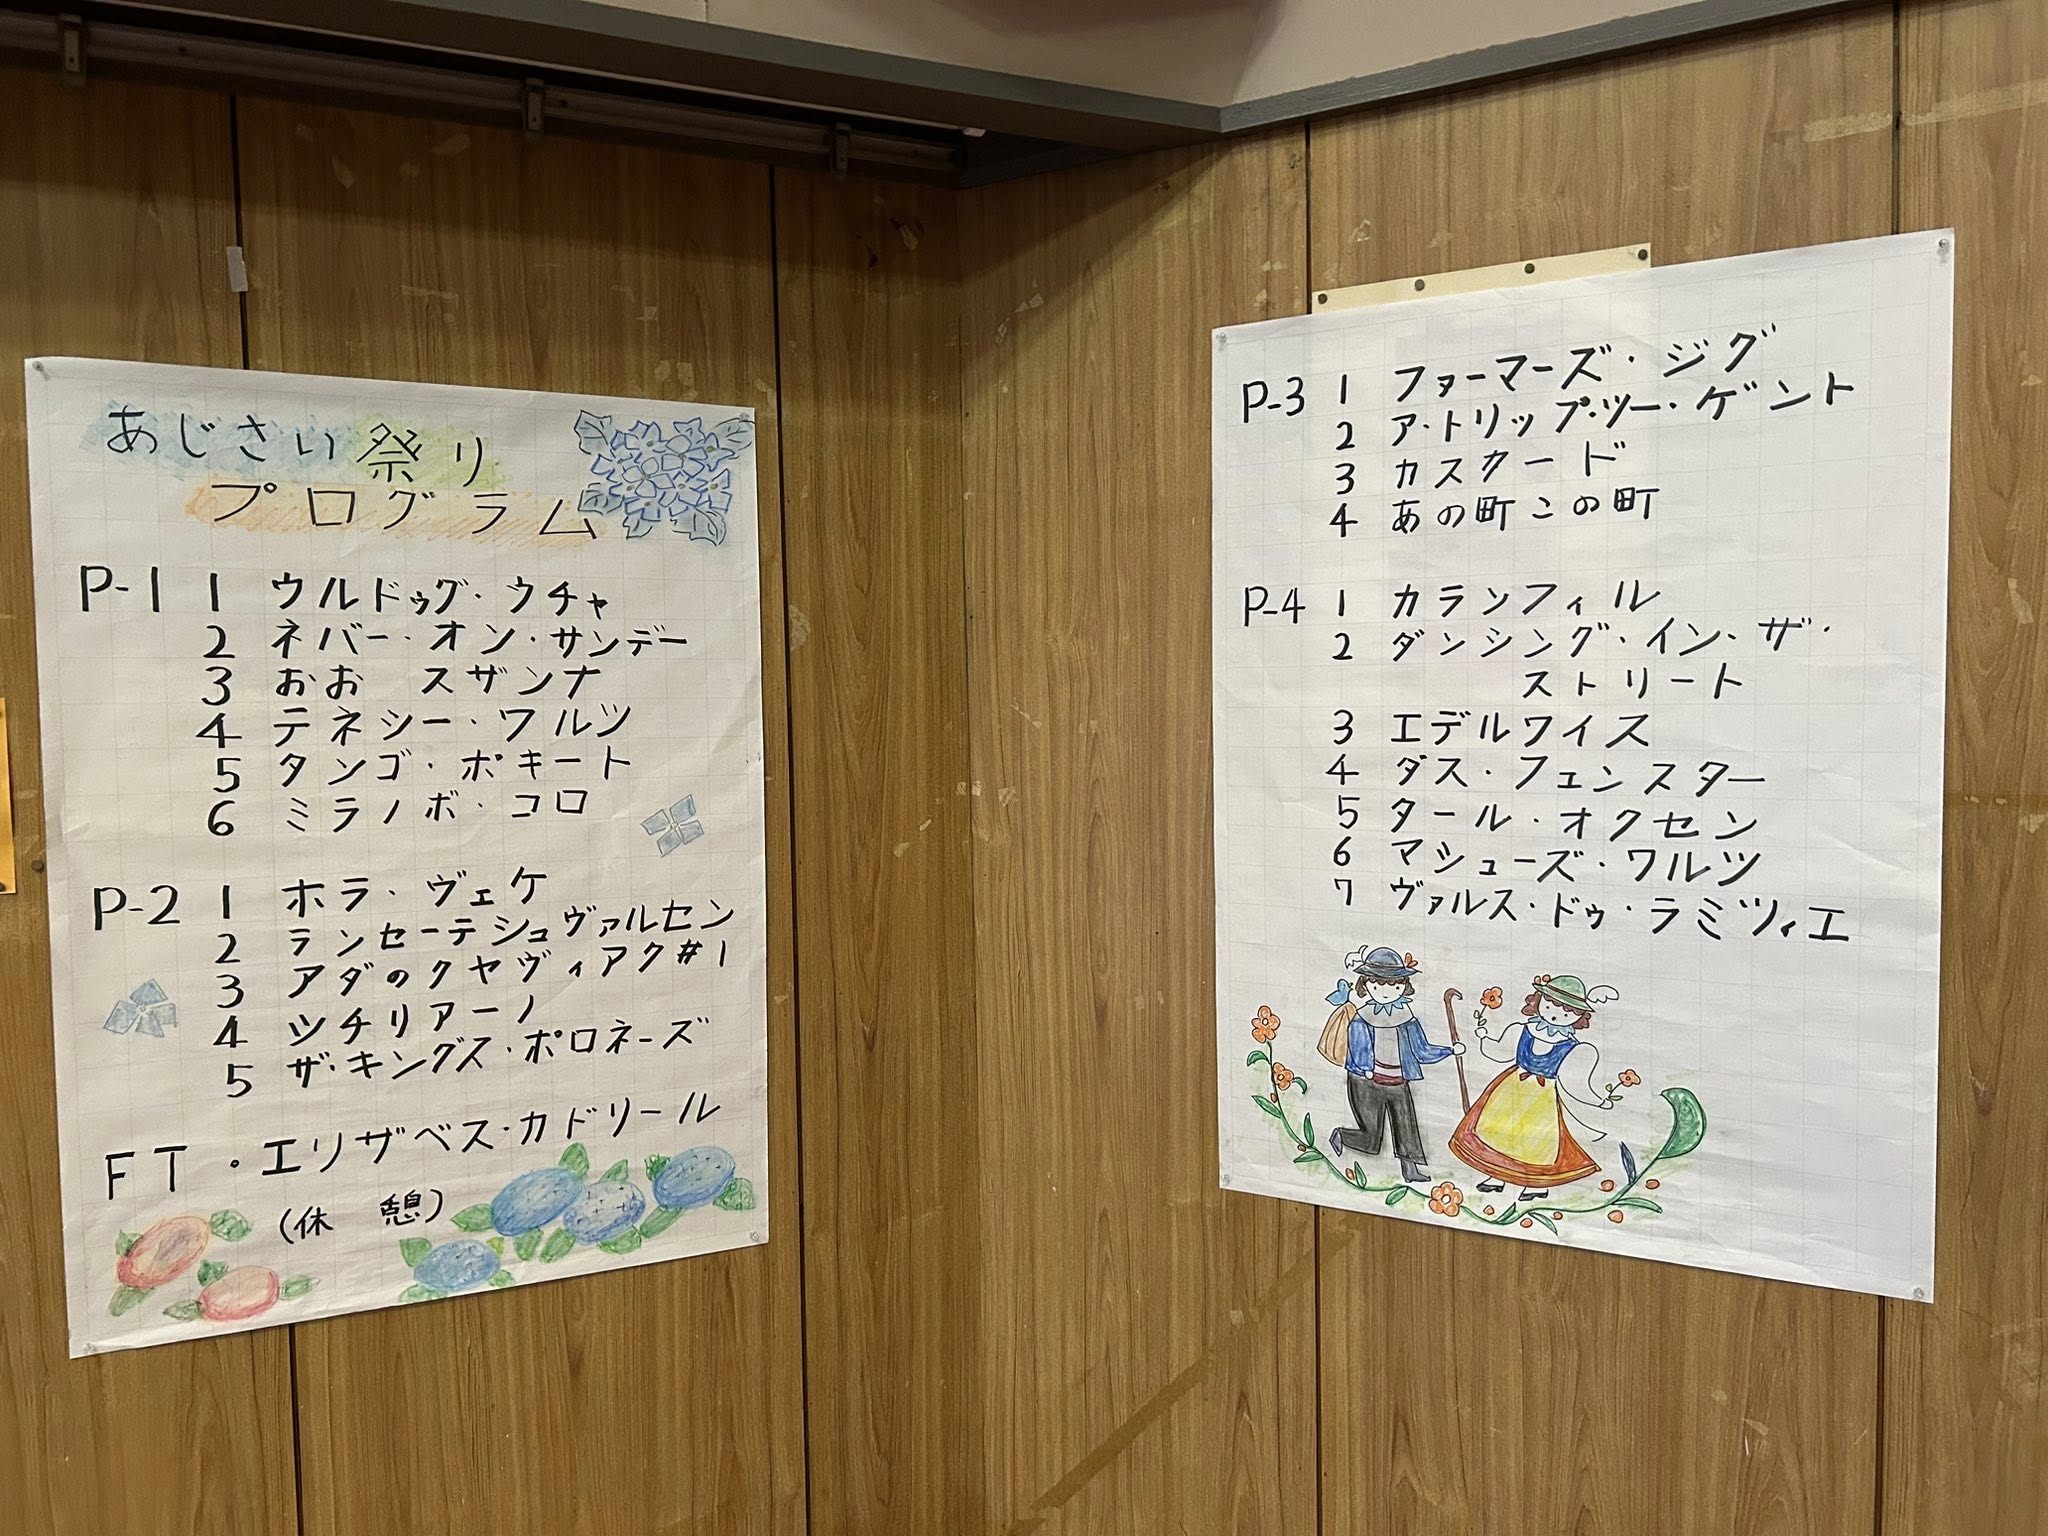 あじさい祭り
プログラム
P-1 1 ウルドゥグ・ウチャ
2 ネバー・オン・サンデー
3 おお スザンナ
4 テネシー・ワルツ
5 タンゴ・ポキート
6 ミラノボ・コロ
P-2 1 ホラ・ヴェケ
2 ランセーテシュヴァルセン
3 アダのクヤヴィアク#1
4 ツチリアーノ
5 ザ・キングス・ポロネーズ
FT ・エリザベス・カドリール
(休 憩)
P-3 1 ファーマーズ・ジグ
2 ア・トリップ・ツー・ゲント
3 カスタード
4 あの町この町
P-4 1 カランフィル
2 ダンシング・イン・ザ・
ストリート
3 エデルワイス
4 ダス・フェンスター
5 タール・オクセン
6 マシューズ・ワルツ
7 ヴァルス・ドゥ・ラミツィエ